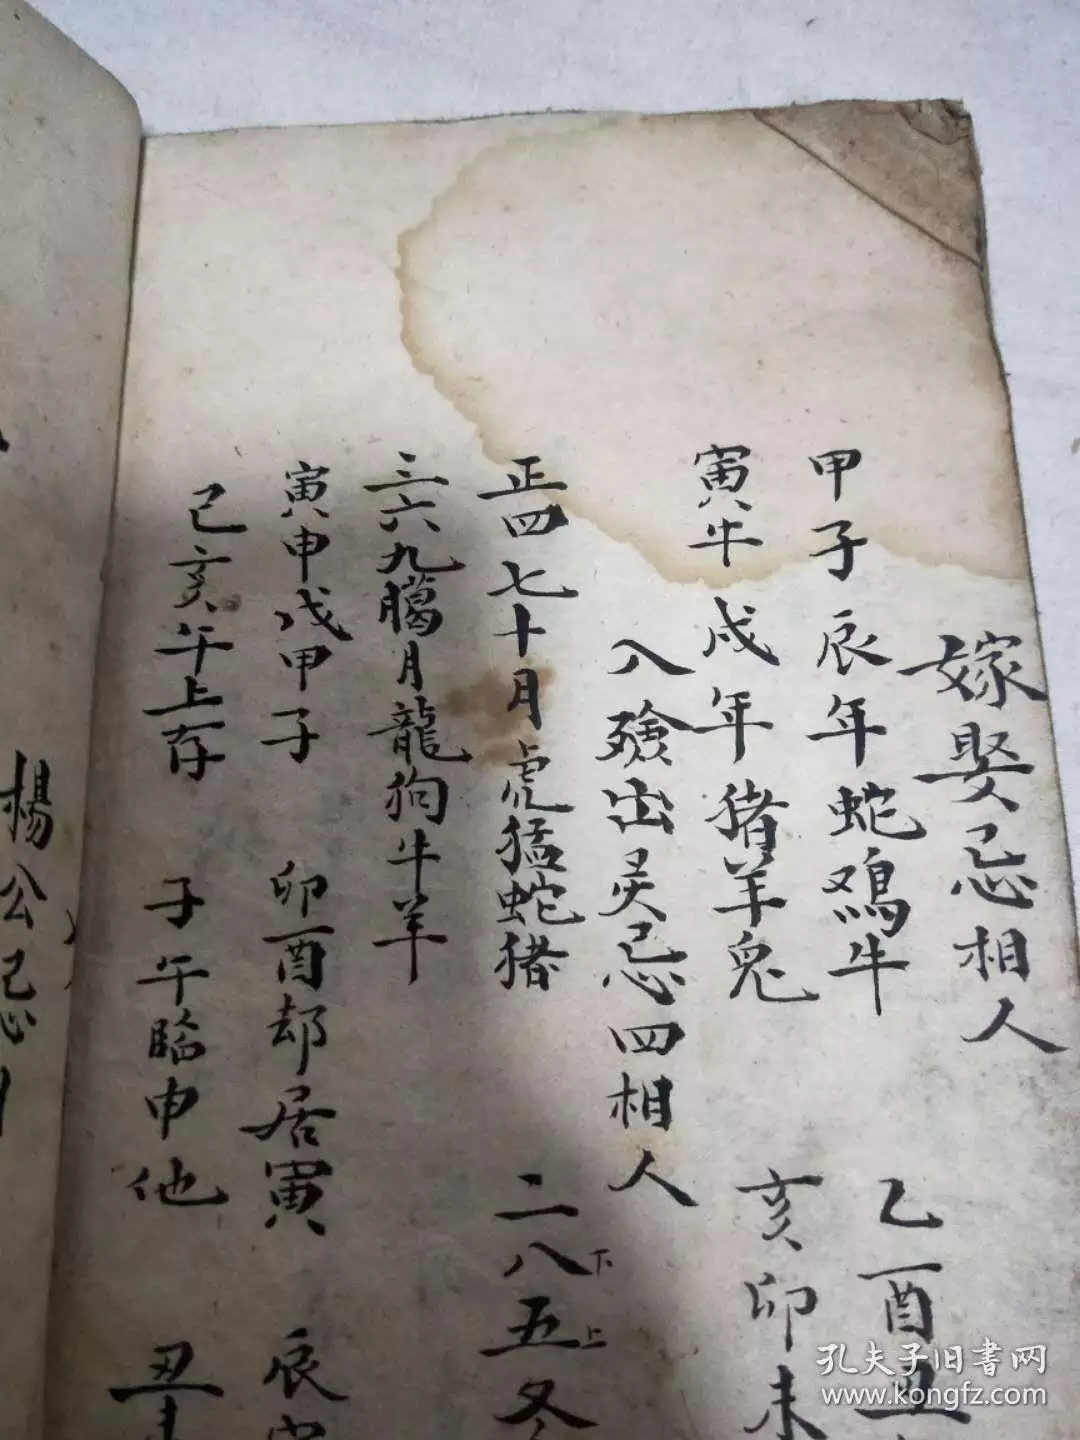 嫁娶忌相人
甲子辰年蛇鳮牛 乙酉丑
寅牛戍年猪羊兔 亥卯未
入殮出灵忌四相人
正四七十月虎猛蛇猪 二八五冬
下上
三六九臈月龍狗牛羊
寅申戊甲子 卯酉却居寅 辰
己亥午上存 子午臨申他 丑未
楊公忌
孔夫子旧書网
www.kongfz.com